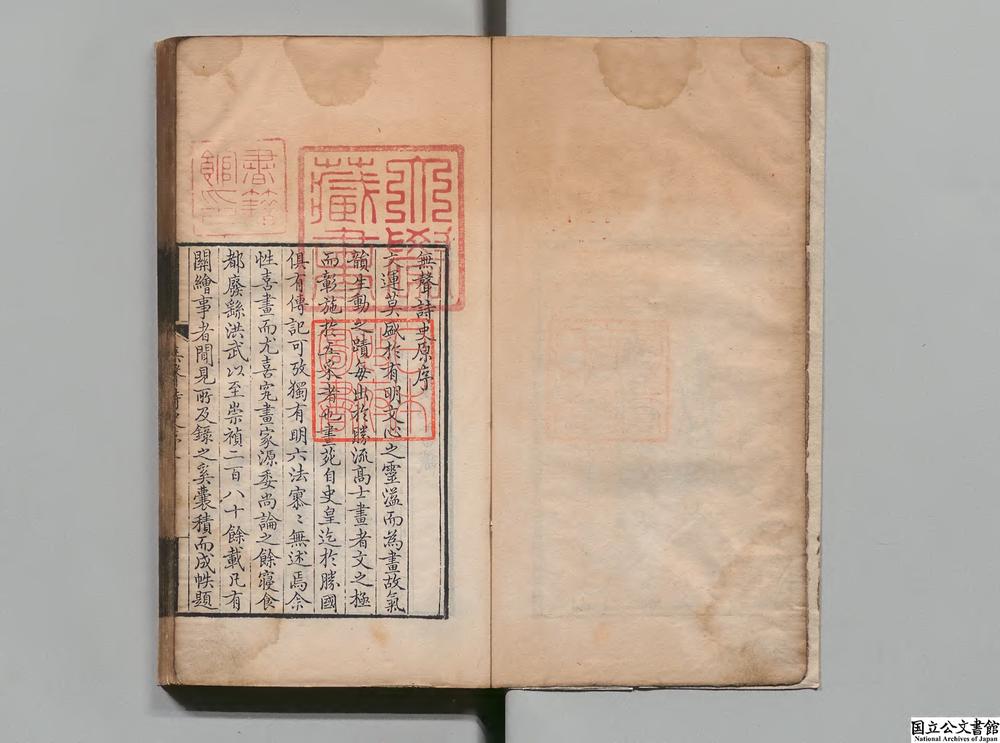 無聲詩史原序
文運莫盛於有明文心之靈溢而為畫故氣
韻生動之蹟每出於勝流高士畫者文之極
而彰施於五采者也畫苑自史皇迄於勝國
俱有傳記可攷獨有明六法寥〻無述焉余
性喜畫而尤喜究畫家源委尚論之餘寢食
都廢繇洪武以至崇禎二百八十餘載凡有
關繪事者聞見所及錄之奚囊積而成帙題
無聲詩史
書籍
館印
藏書
日本
圖書
国立公文書館
National Archives of Japan